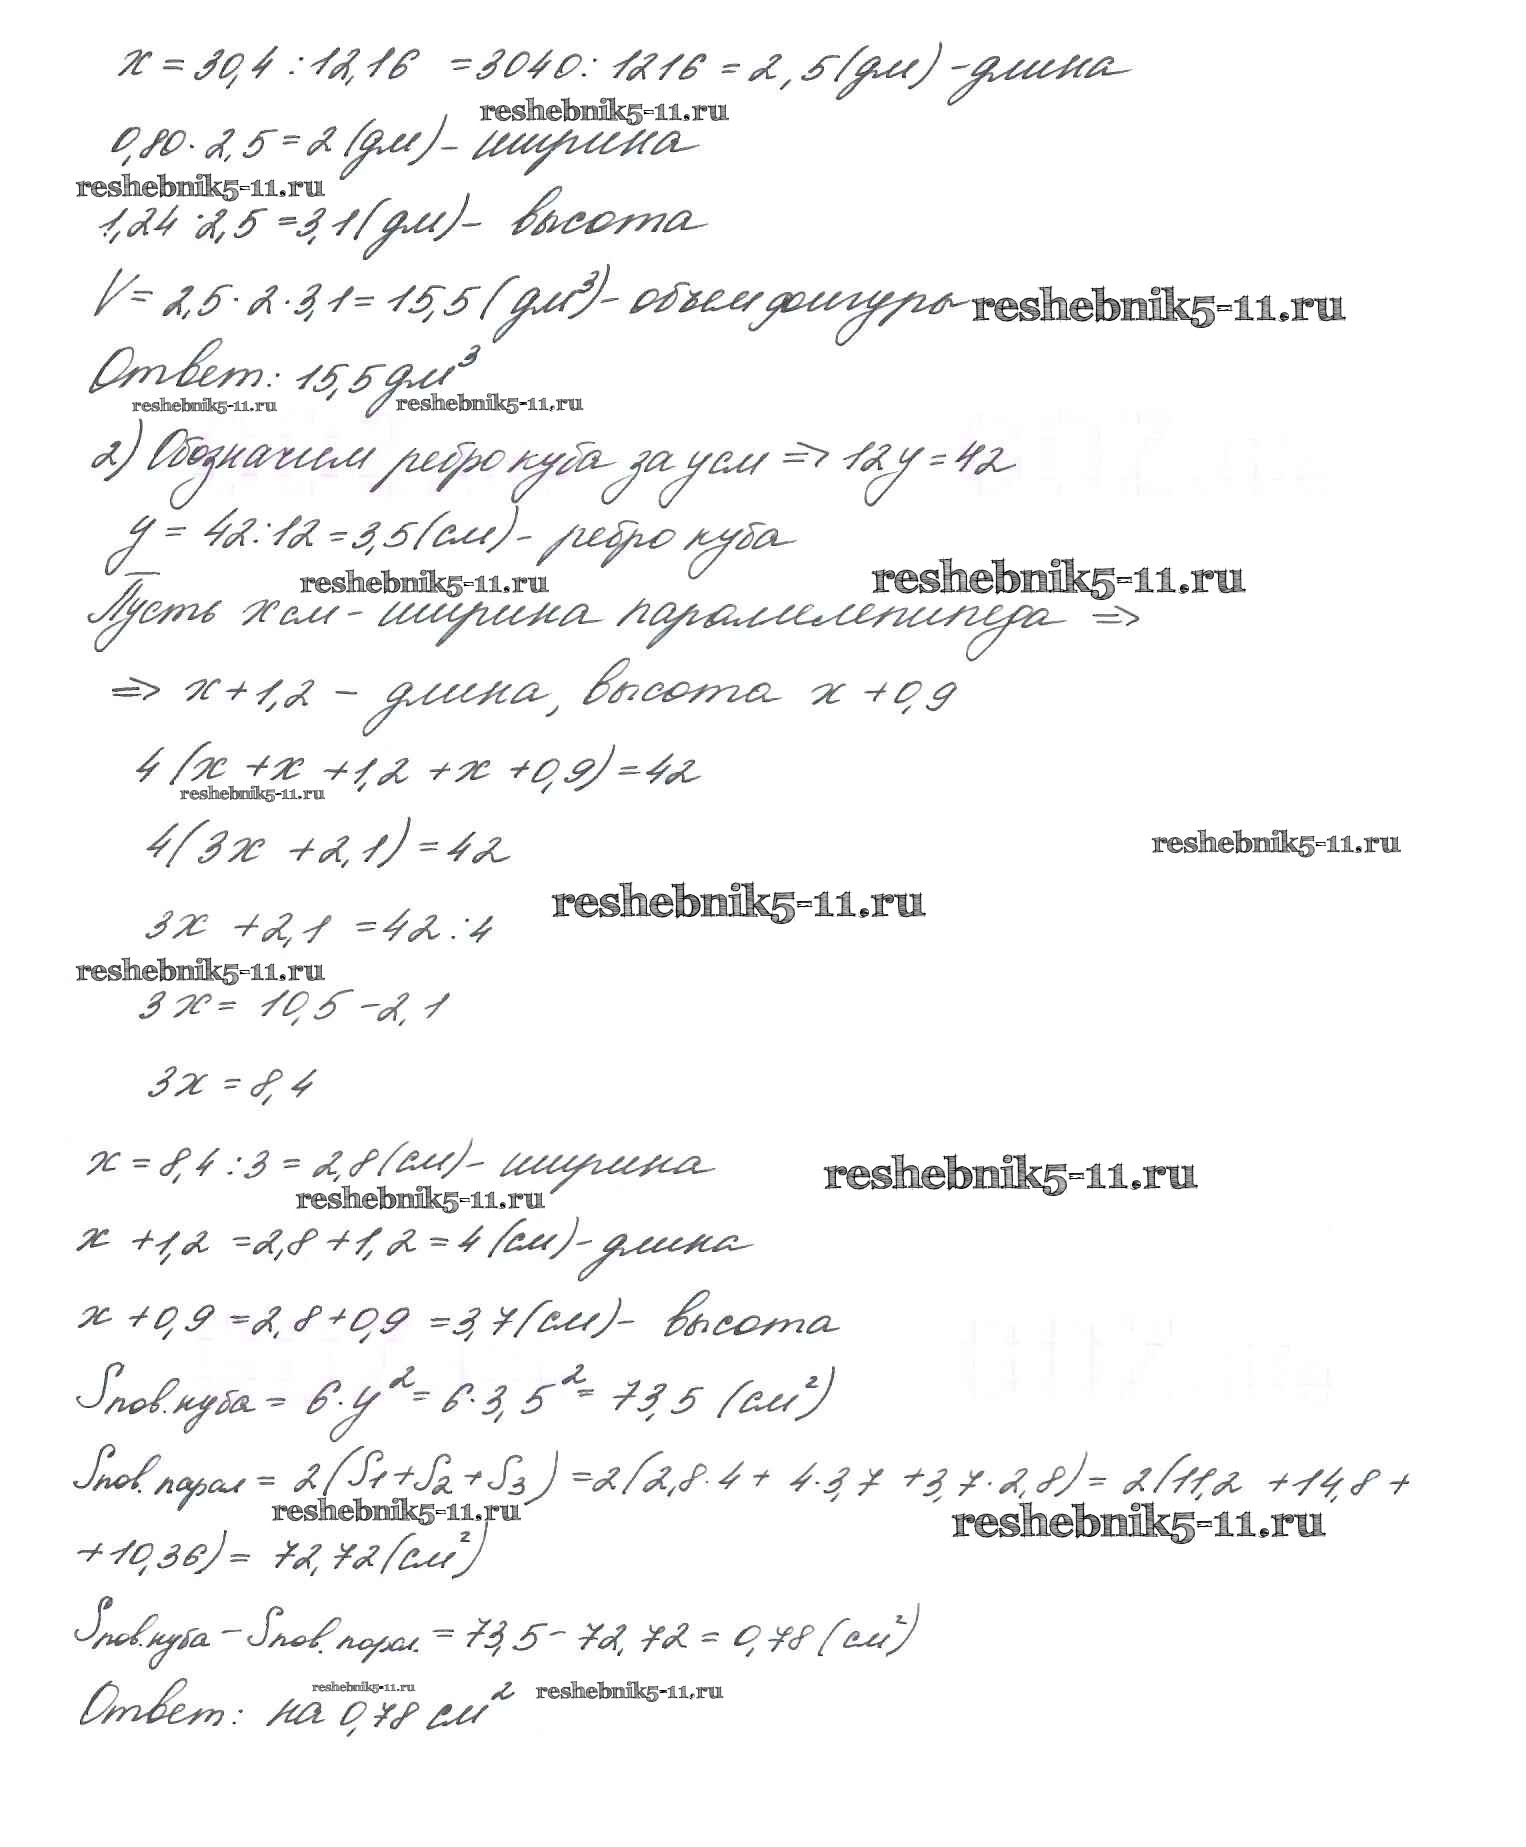 x = 30,4 : 12,16 = 3040 : 1216 = 2,5 (дм) - длина
reshebnik5-11.ru
0,80 · 2,5 = 2 (дм) - ширина
reshebnik5-11.ru
1,24 · 2,5 = 3,1 (дм) - высота
V = 2,5 · 2 · 3,1 = 15,5 (дм³) - объем фигуры reshebnik5-11.ru
Ответ: 15,5 дм³
reshebnik5-11.ru reshebnik5-11.ru
2) Обозначим ребро куба за y см => 12y = 42
y = 42 : 12 = 3,5 (см) - ребро куба
reshebnik5-11.ru reshebnik5-11.ru
Пусть x см - ширина параллелепипеда =>
=> x + 1,2 - длина, высота x + 0,9
4 (x + x + 1,2 + x + 0,9) = 42
reshebnik5-11.ru
4 (3x + 2,1) = 42 reshebnik5-11.ru
reshebnik5-11.ru
3x + 2,1 = 42 : 4
reshebnik5-11.ru
3x = 10,5 - 2,1
3x = 8,4
x = 8,4 : 3 = 2,8 (см) - ширина reshebnik5-11.ru
reshebnik5-11.ru
x + 1,2 = 2,8 + 1,2 = 4 (см) - длина
x + 0,9 = 2,8 + 0,9 = 3,7 (см) - высота
Sпов.куба = 6 · y² = 6 · 3,5² = 73,5 (см²)
Sпов.парал = 2 (S1 + S2 + S3) = 2 (2,8 · 4 + 4 · 3,7 + 3,7 · 2,8) = 2 (11,2 + 14,8 +
reshebnik5-11.ru reshebnik5-11.ru
+ 10,36) = 72,72 (см²)
Sпов.куба - Sпов.парал. = 73,5 - 72,72 = 0,78 (см²)
reshebnik5-11.ru reshebnik5-11.ru
Ответ: на 0,78 см²